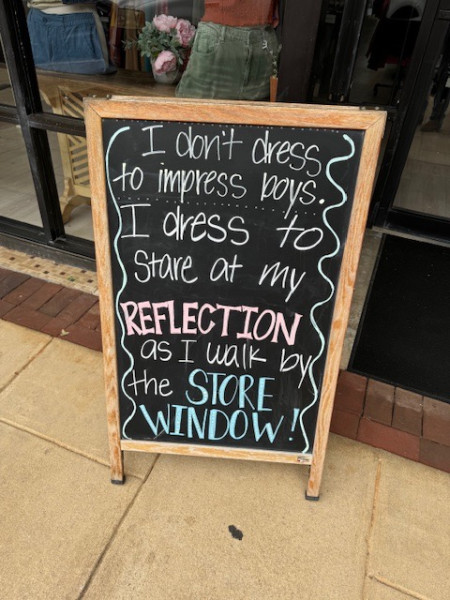 I don't dress
to impress boys.
I dress to
stare at my
REFLECTION
as I walk by
the STORE
WINDOW!